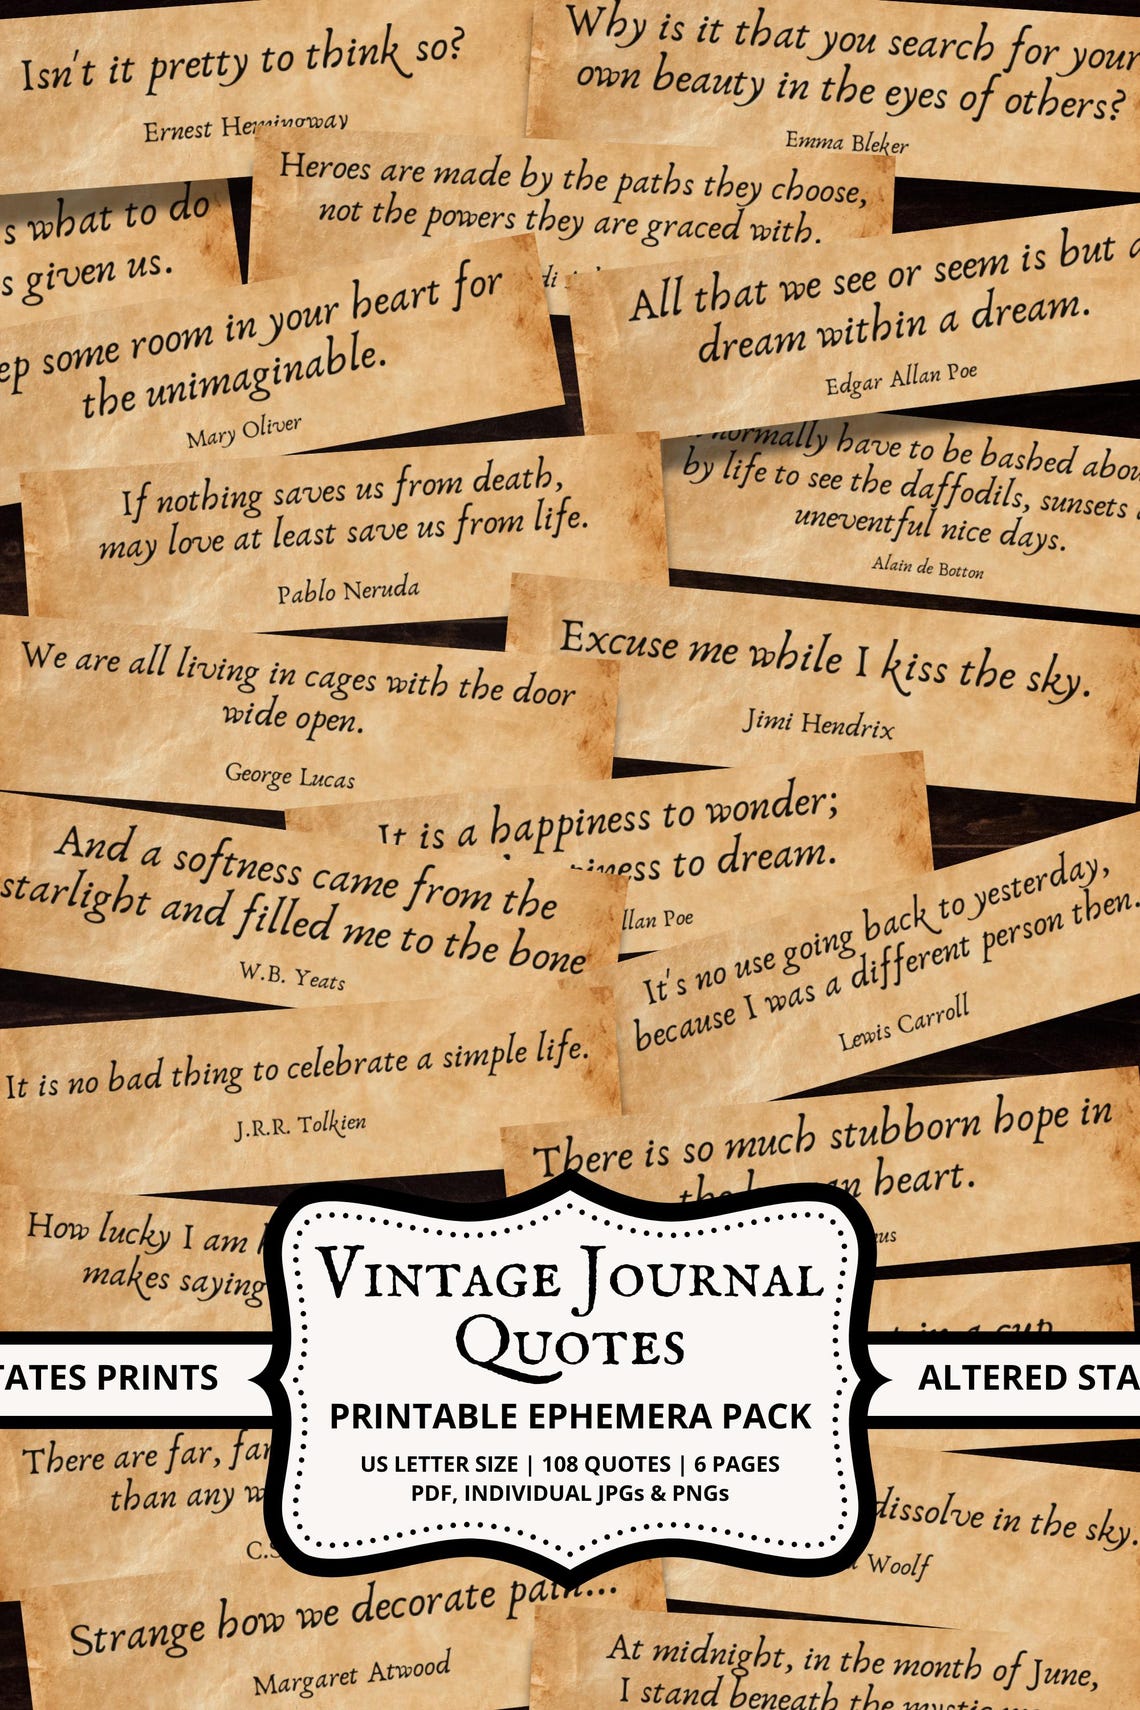 Isn't it pretty to think so?
Ernest Hemingway
Why is it that you search for your
own beauty in the eyes of others?
Emma Bleker
Heroes are made by the paths they choose,
not the powers they are graced with.
s what to do
s given us.
ep some room in your heart for
the unimaginable.
Mary Oliver
All that we see or seem is but a
dream within a dream.
Edgar Allan Poe
normally have to be bashed abou
by life to see the daffodils, sunsets
uneventful nice days.
Alain de Botton
If nothing saves us from death,
may love at least save us from life.
Pablo Neruda
Excuse me while I kiss the sky.
Jimi Hendrix
We are all living in cages with the door
wide open.
George Lucas
It is a happiness to wonder;
iness to dream.
llan Poe
And a softness came from the
starlight and filled me to the bone
W.B. Yeats
It's no use going back to yesterday,
because I was a different person then.
Lewis Carroll
It is no bad thing to celebrate a simple life.
J.R.R. Tolkien
There is so much stubborn hope in
the human heart.
us
How lucky I am
makes saying
in a cup
VINTAGE JOURNAL
QUOTES
PRINTABLE EPHEMERA PACK
US LETTER SIZE | 108 QUOTES | 6 PAGES
PDF, INDIVIDUAL JPGs & PNGs
TATES PRINTS
ALTERED STA
There are far, far
than any w
C.S
dissolve in the sky.
Woolf
Strange how we decorate pain...
Margaret Atwood
At midnight, in the month of June,
I stand beneath the mystic